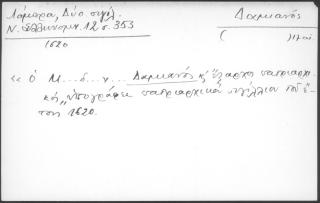 Λάμπρος, Δύο σιγίλ.
Ν. Ἑλληνομν. 12 σ. 353
1620
Δαμιανὸς
( )
« Ὁ Μ...δ...ν... Δαμιανὸς κ' ἔξαρχος πατριαρχι-
κὸς „ ὑπογράφει πατριαρχικὸν σιγίλλιον τοῦ ἔ-
τους 1620.